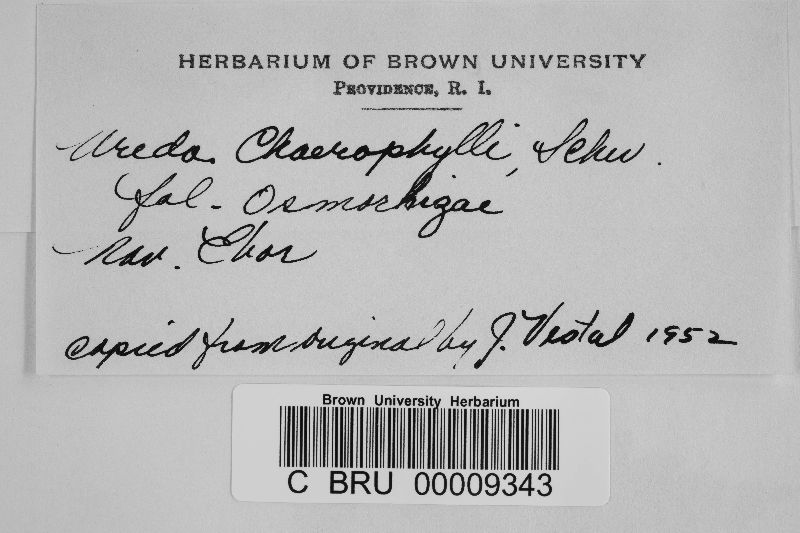 HERBARIUM OF BROWN UNIVERSITY
PROVIDENCE, R. I.
Uredo. Chaerophylli, Schw.
fol - Osmorhizae
Nov. Ebor
copied from original by J. Vestal 1952
Brown University Herbarium
C BRU 00009343